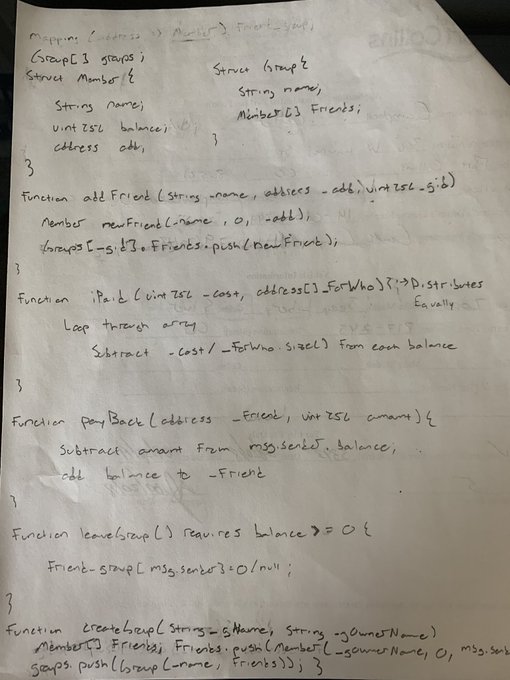 Mapping (address => Member) Friend_group;
Group[] groups;
Struct Member {
String name;
uint256 balance;
address add;
}
Struct Group {
String name;
Member[] Friends;
}
Function addFriend (String _name, address _add, uint256 _gid)
Member newFriend(_name, 0, _add);
Groups[_gid].Friends.push(newFriend);
}
Function iPaid (uint256 _cost, address[] _ForWho) { → Distributes
Equally
Loop through array
Subtract _cost / _ForWho.size() From each balance
}
Function payBack (address _Friend, uint256 amount) {
Subtract amount From msg.sender.balance;
add balance to _Friend
}
Function leaveGroup () requires balance >= 0 {
Friend_group[msg.sender] = 0/null;
}
Function createGroup (String _gName, String _gOwnerName)
Member[] Friends; Friends.push(Member(_gOwnerName, 0, msg.send
groups.push(Group(_name, Friends)); }